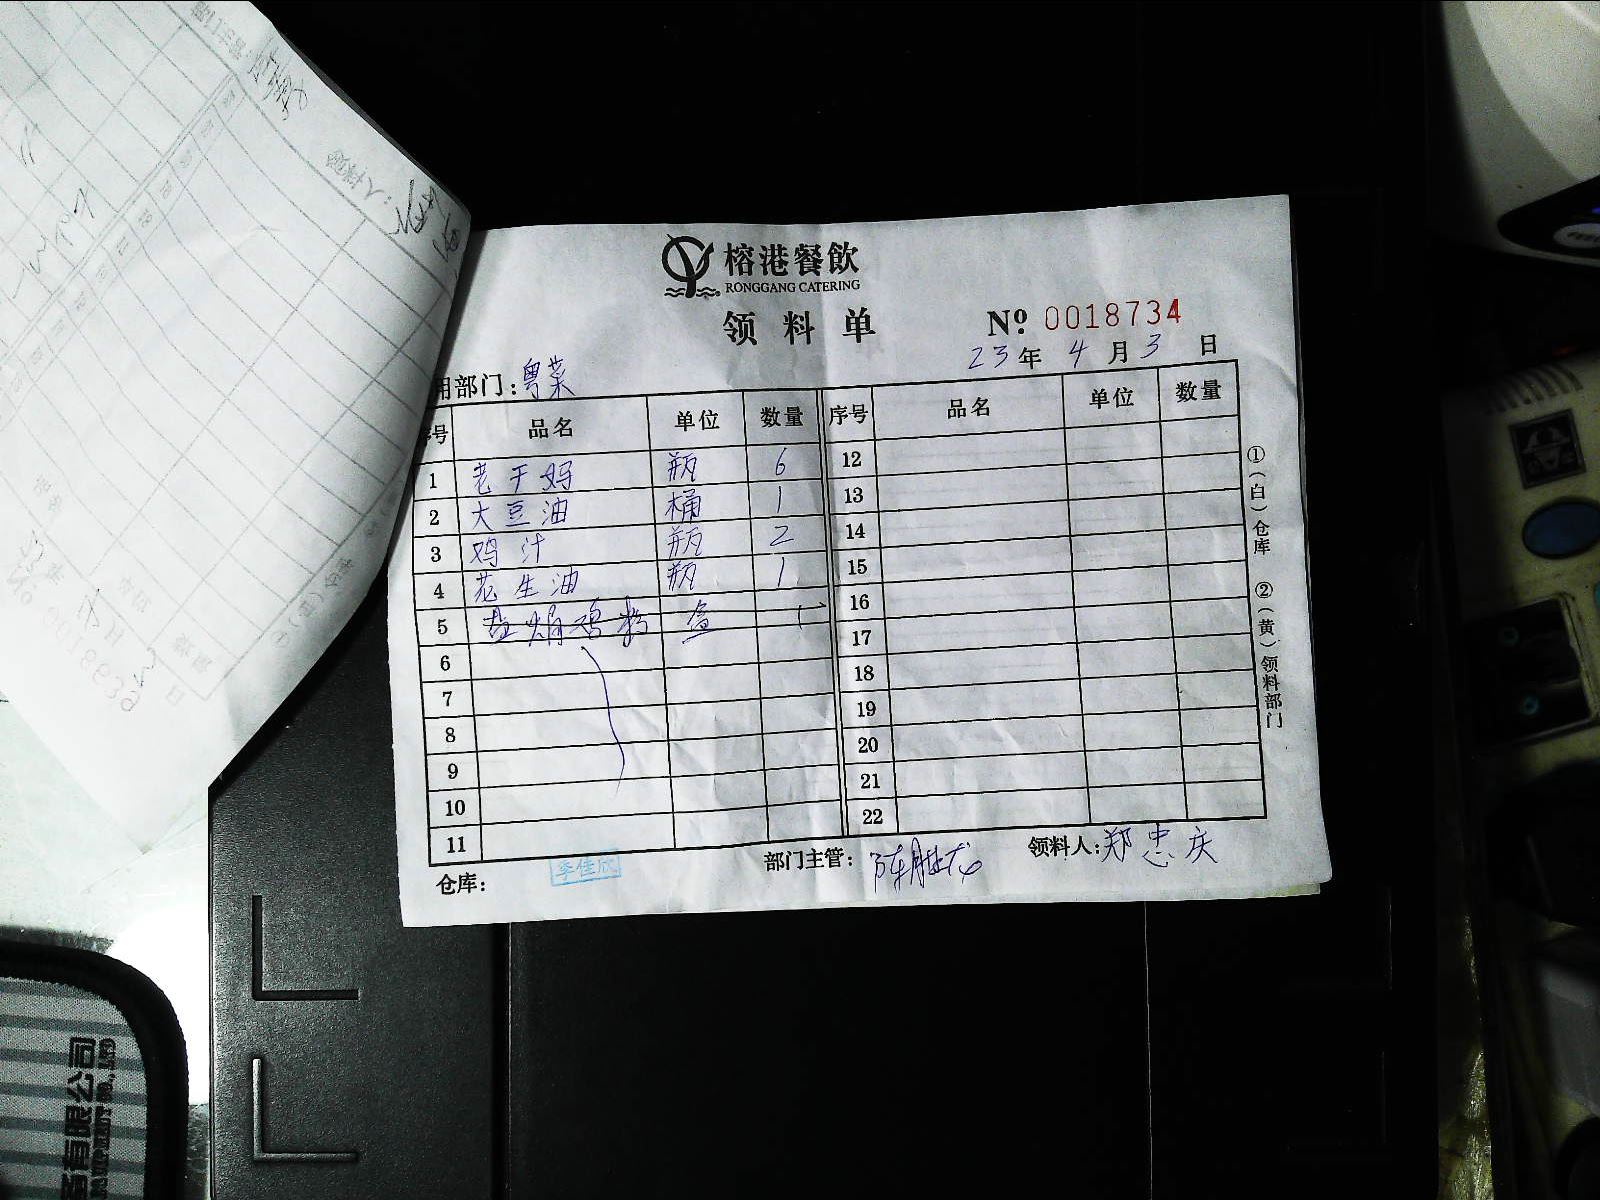 榕港餐飲
RONGGANG CATERING
领料单
Nº 0018734
23年 4月 3日
用部门：粤菜
号 品名 单位 数量 序号 品名 单位 数量
1 老干妈 瓶 6 12
2 大豆油 桶 1 13
3 鸡汁 瓶 2 14
4 花生油 瓶 1 15
5 盐焗鸡粉 盒 1 16
6 17
7 18
8 19
9 20
10 21
11 22
①（白）仓库 ②（黄）领料部门
仓库： 李佳欣 部门主管：陈胜龙 领料人：郑忠庆
有限公司